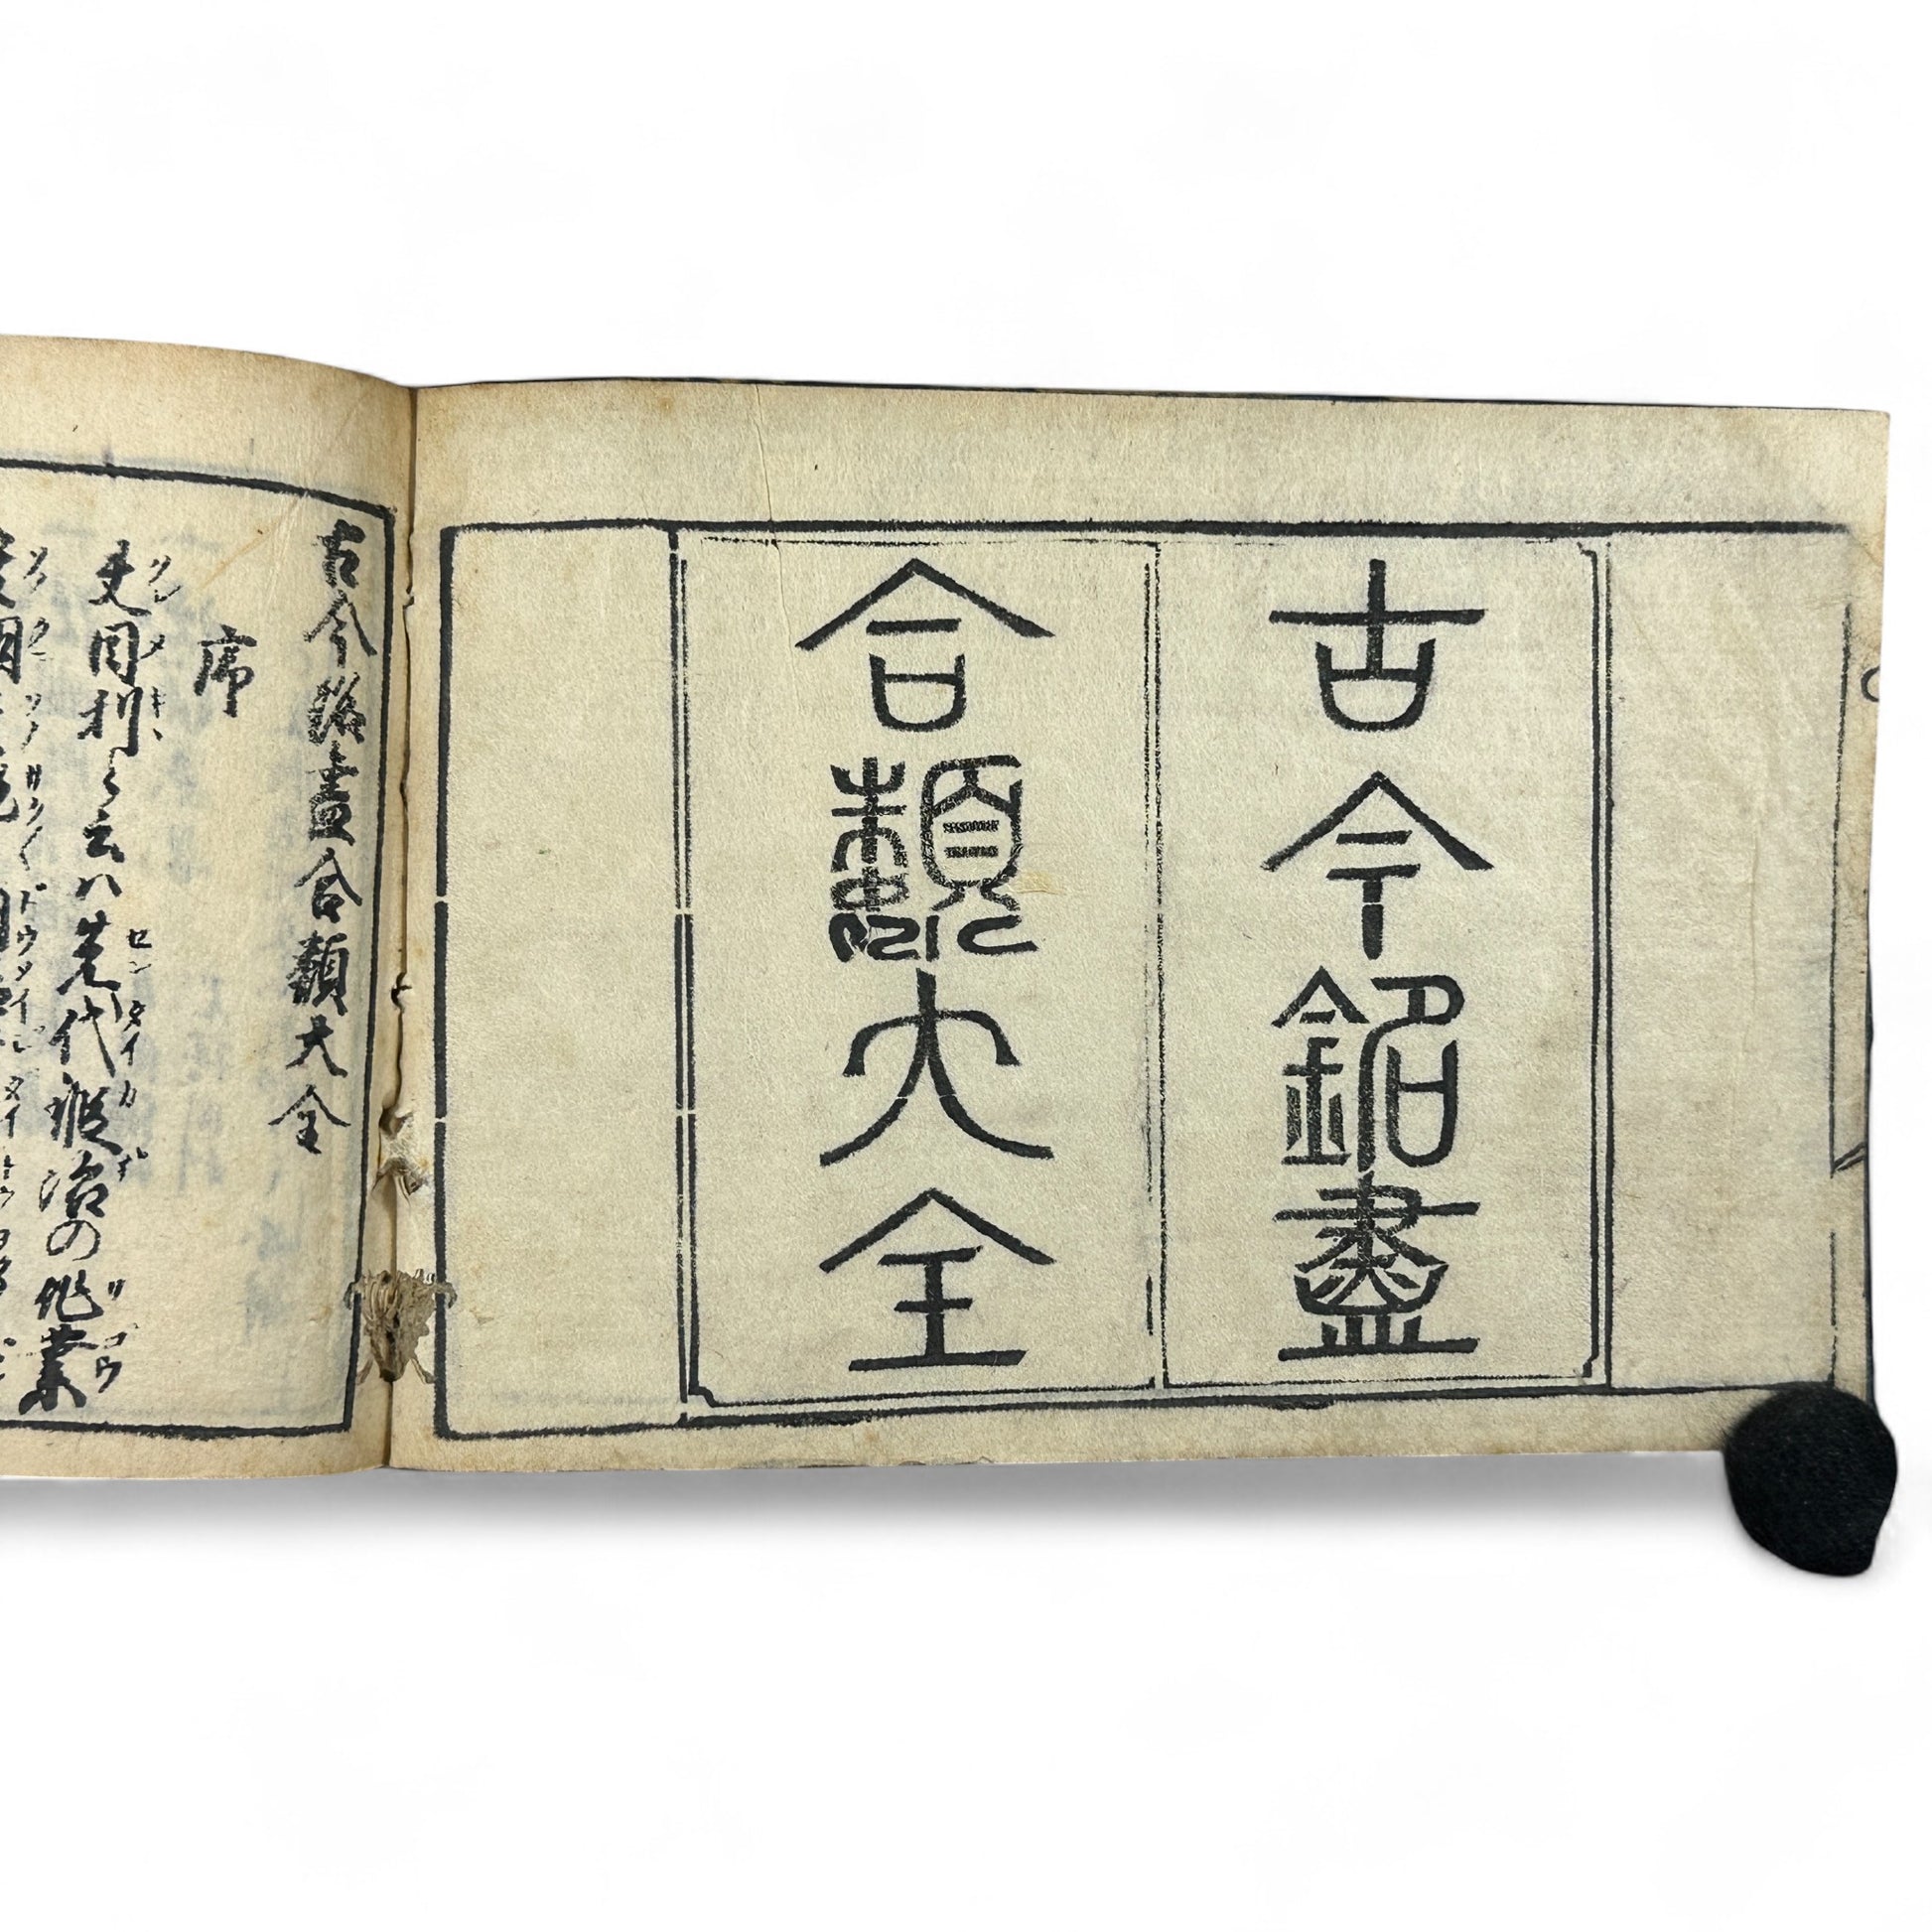 古今銘盡
合類大全
古今銘盡合類大全
序
夫目利と云ハ先代鍛冶の作業